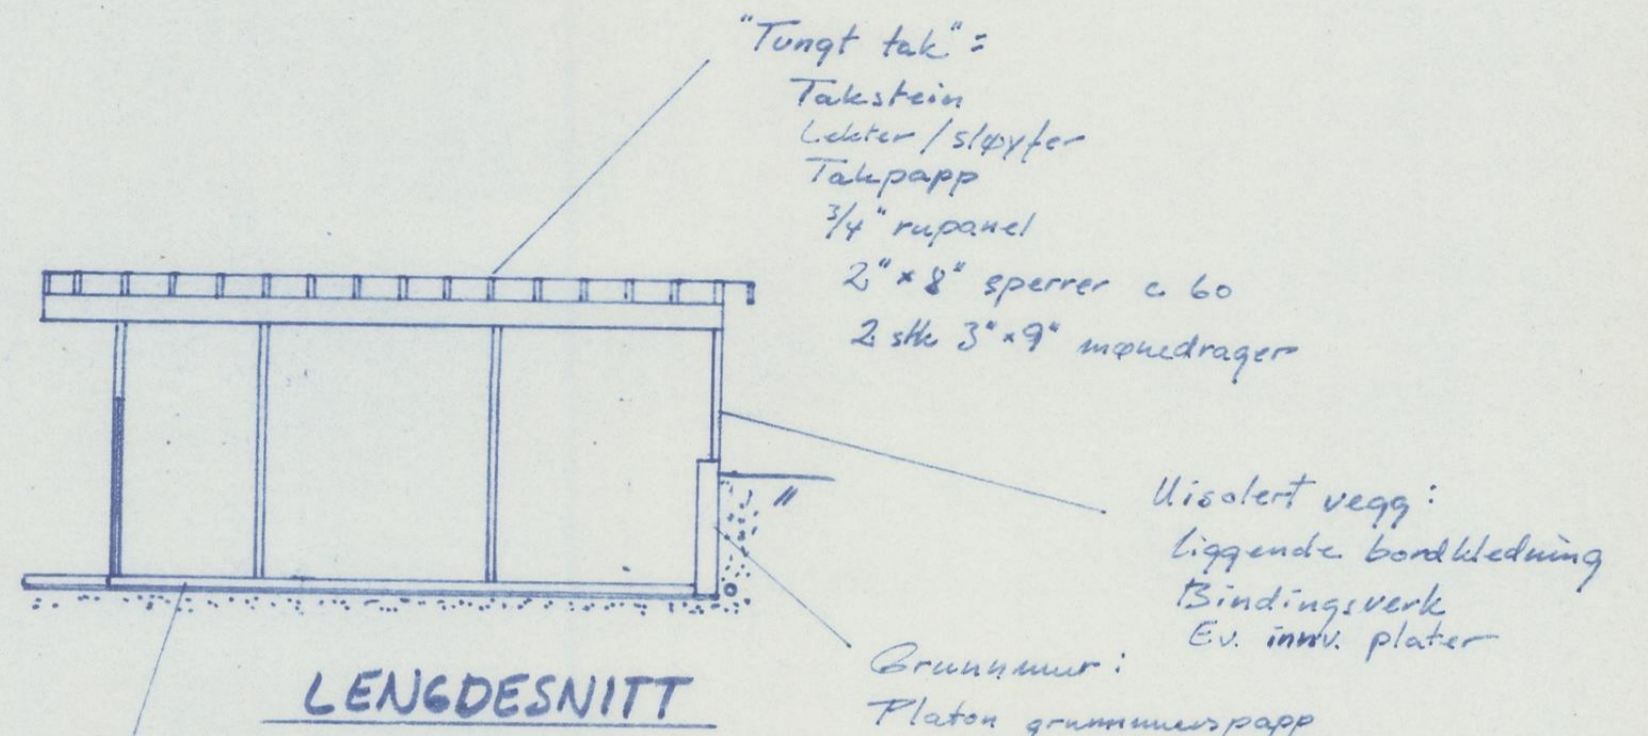 "Tungt tak" =
Takstein
Lekter / sløyfer
Takpapp
3/4" rupanel
2" x 8" sperrer c 60
2 stk 3" x 9" mønedrager
Uisolert vegg :
liggende bordkledning
Bindingsverk
Ev. innv. plater
Grunnmur :
Platon grunnmurspapp
LENGDESNITT